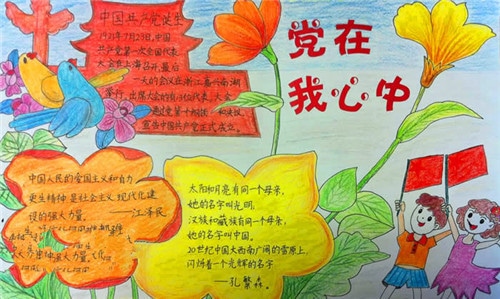 党在
我心中
中国共产党诞生
1921年7月23日,中国
共产党第一次全国代表
大会在上海召开,最后
一天的会议在浙江嘉兴南湖
举行,出席大会的有13位代表,大会
宣告中国共产党正式成立。
中国人民的爱国主义和自力
更生精神是社会主义现代化建
设的强大力量。
——江泽民
太阳和月亮有同一个母亲,
她的名字叫光明,
汉族和藏族有同一个母亲,
她的名字叫中国。
20世纪中国大西南广阔的雪原上,
闪烁着一个光辉的名字
——孔繁森。